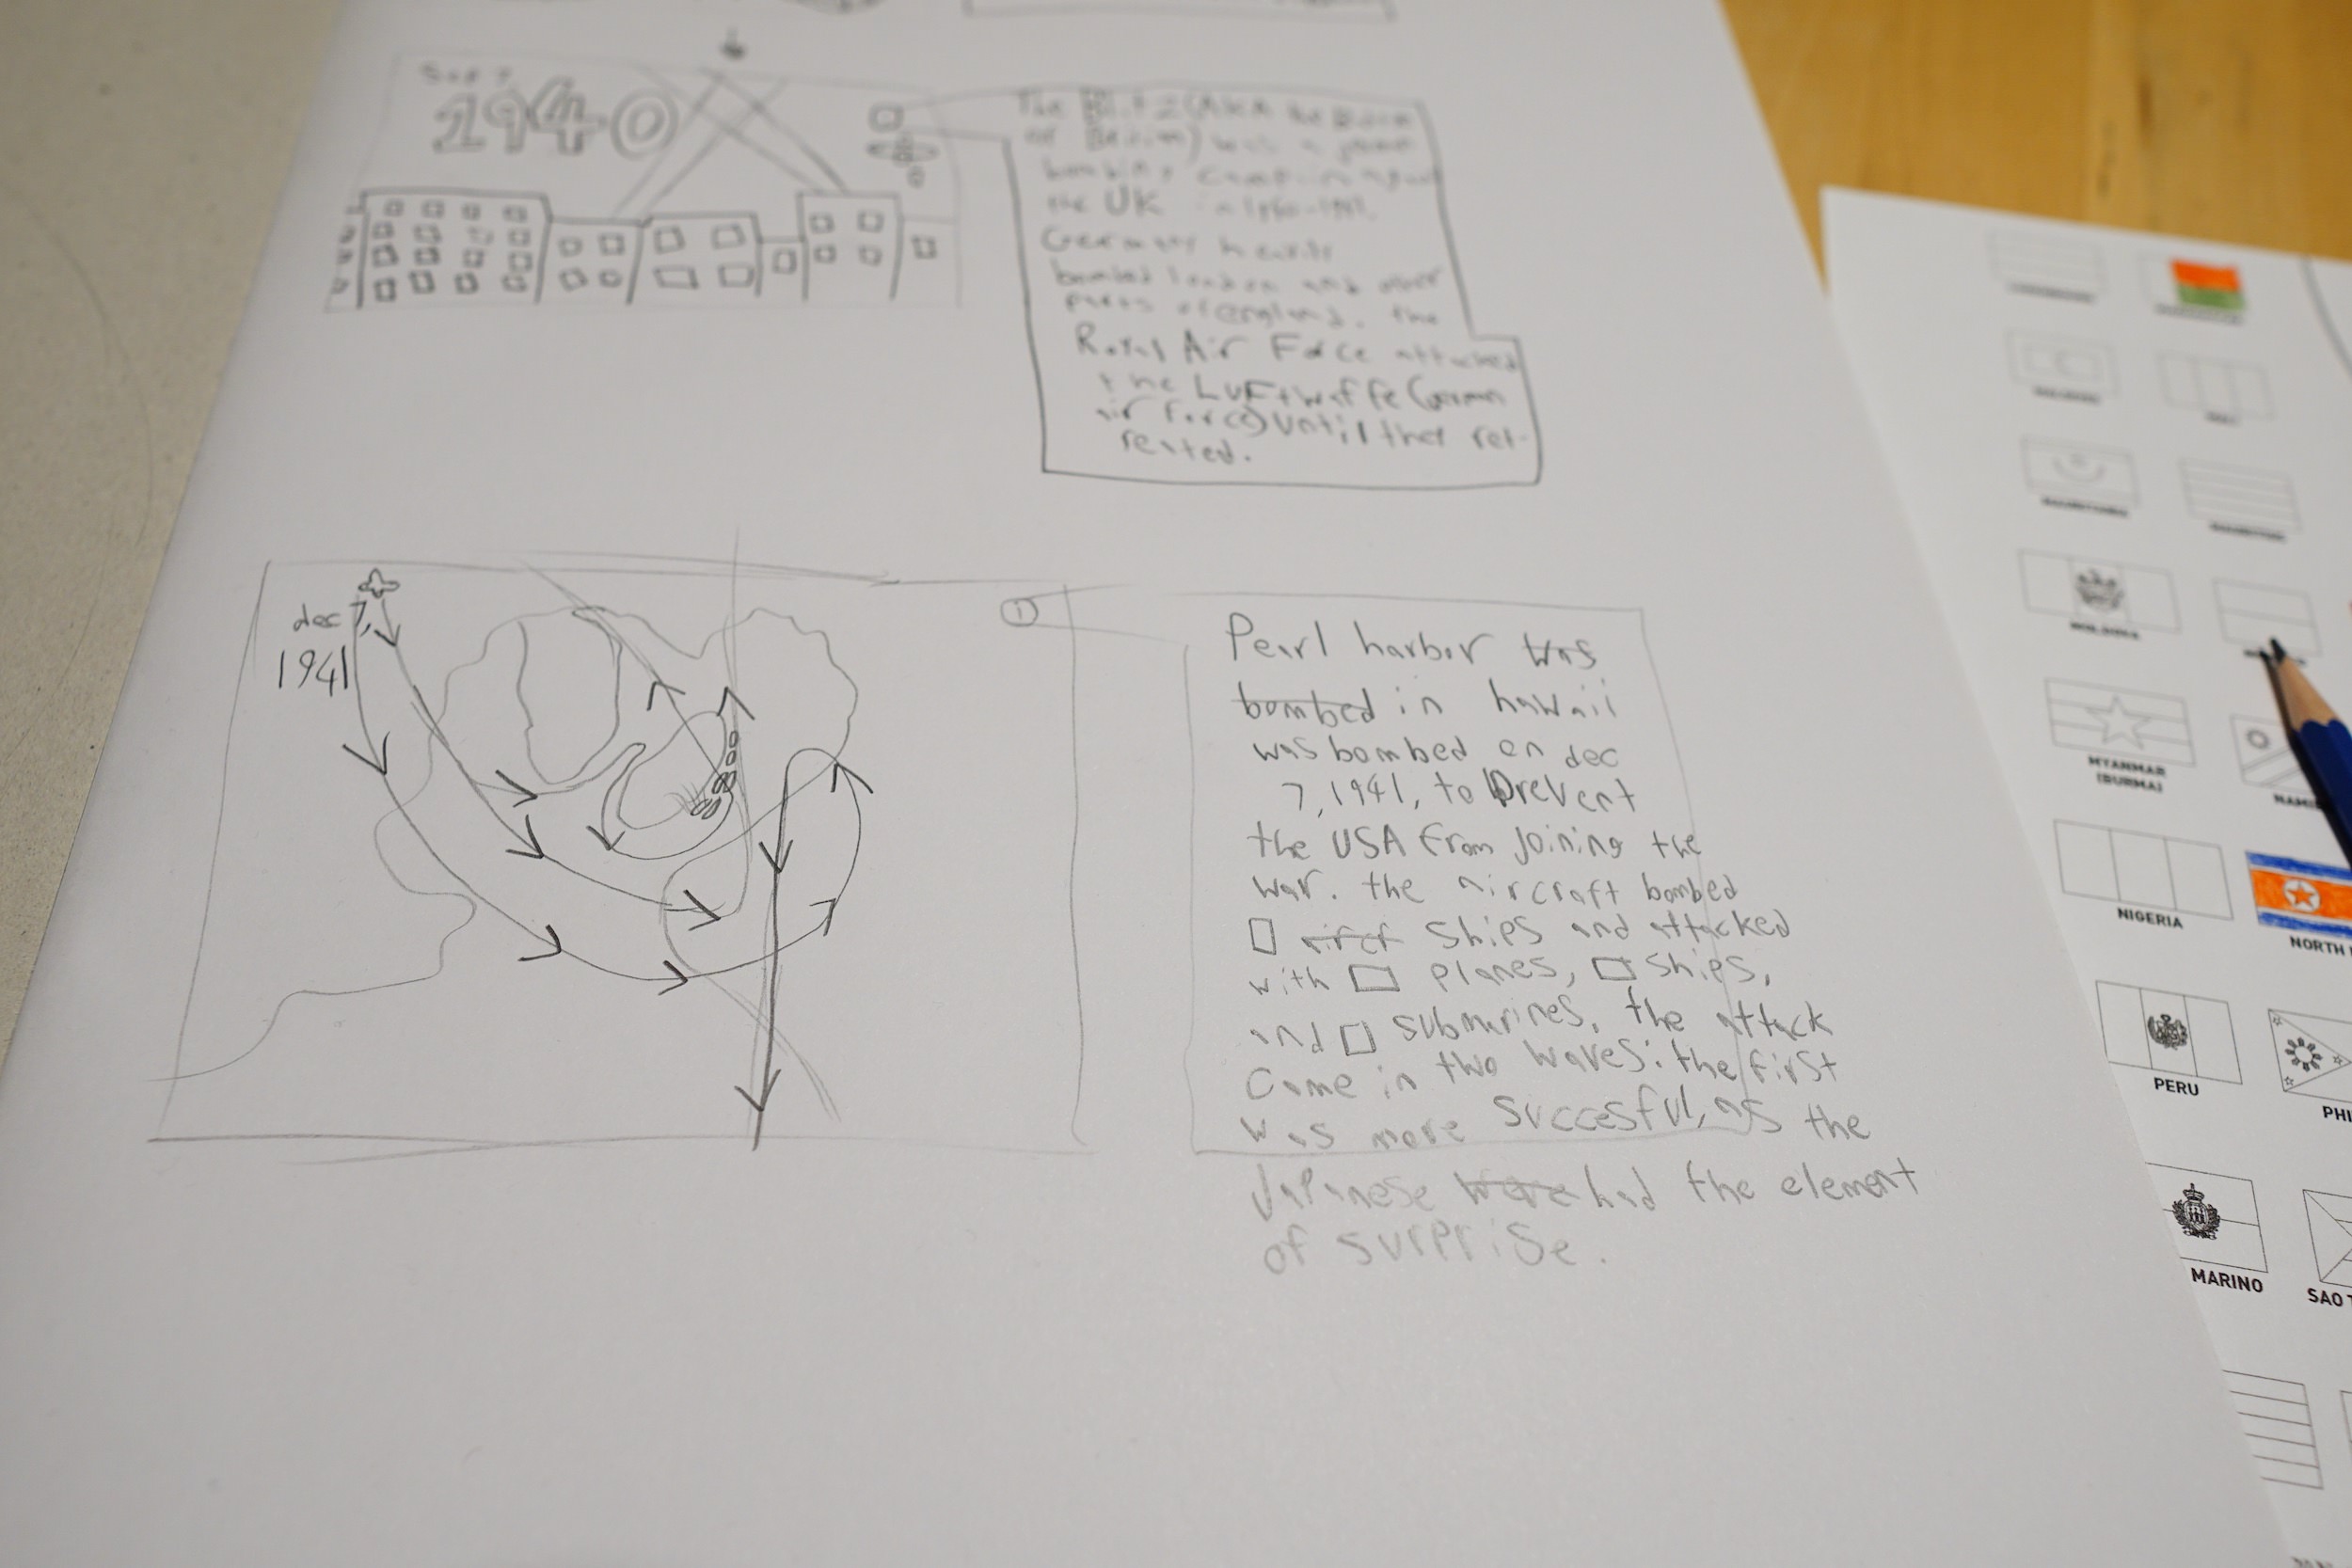 Sep 7
1940
The Blitz (AKA the
of            ) was a
bombing
the UK in 1940-1941.
Germany heavily
bombed london and other
parts of england. the
Royal Air Force attacked
the LuFtwaffe (German
air force) until they ret-
reated.
dec 7,
1941
1
Pearl harbor was
bombed in hawaii
was bombed on dec
7, 1941, to prevent
the USA from joining the
war. the aircraft bombed
□ aircr ships and attacked
with □ planes, □ ships,
and □ submarines. the attack
Came in two waves: the first
was more succesful, as the
Japanese were had the element
of surprise.
MOLDOVA
MYANMAR
(BURMA)
NAMI
NIGERIA
NORTH
PERU
PHI
MARINO
SAO T